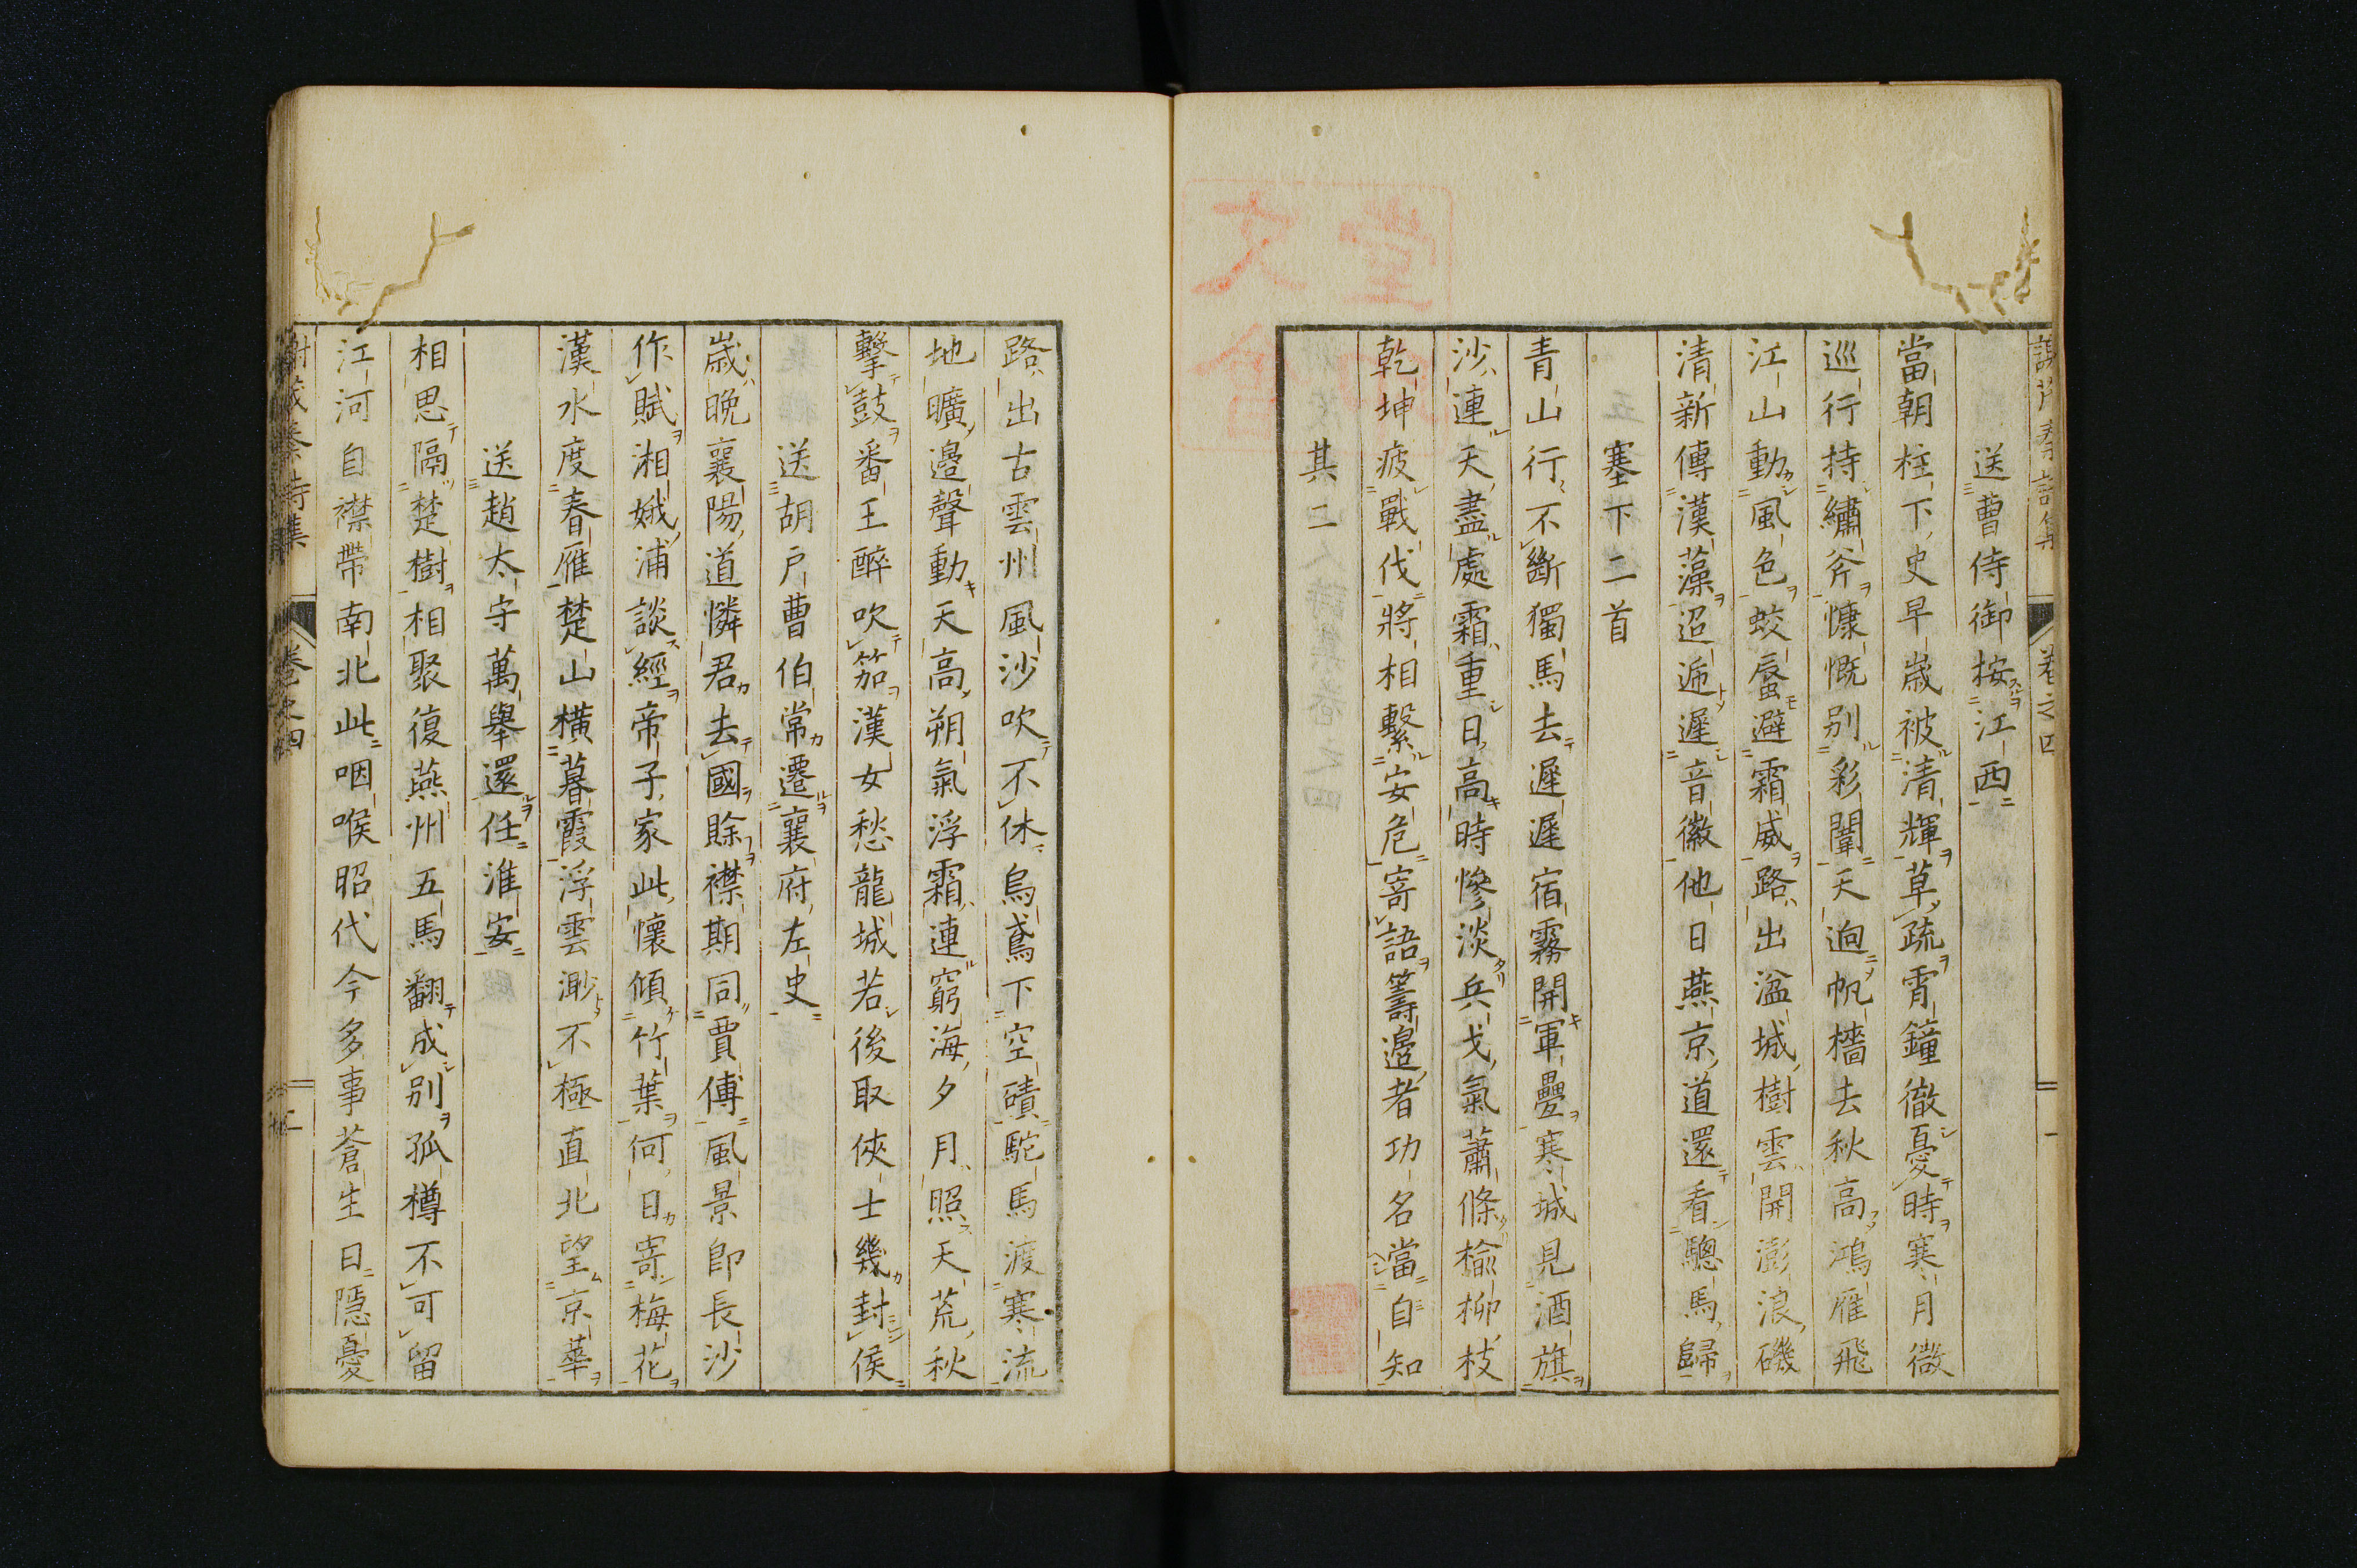 送曹侍御按江西
當朝柱下史早歳被清輝草疏霄鐘徹憂時寒月微
巡行持繡斧慷慨別彩闈天逈帆檣去秋高鴻雁飛
江山動風色蛟蜃避霜威路出湓城樹雲開澎浪磯
清新傳漢藻迢遞遲音徽他日燕京道還看驄馬歸
塞下二首
青山行不斷獨馬去遲遲宿霧開軍壘寒城見酒旗
沙連天盡處霜重日高時慘淡兵戈氣蕭條楡柳枝
乾坤疲戰伐將相繫安危寄語籌邊者功名當自知
其二
路出古雲州風沙吹不休烏鳶下空磧駝馬渡寒流
地曠邊聲動天高朔氣浮霜連窮海夕月照天荒秋
擊鼓番王醉吹笳漢女愁龍城若後取俠士幾封侯
送胡戸曹伯常遷襄府左史
歳晚襄陽道憐君去國賖襟期同賈傅風景即長沙
作賦湘娥浦談經帝子家此懷傾竹葉何日寄梅花
漢水度春雁楚山橫暮霞浮雲渺不極直北望京華
送趙太守萬舉還任淮安
相思隔楚樹相聚復燕州五馬翻成別孤樽不可留
江河自襟帶南北此咽喉昭代今多事蒼生日隱憂
卷之四